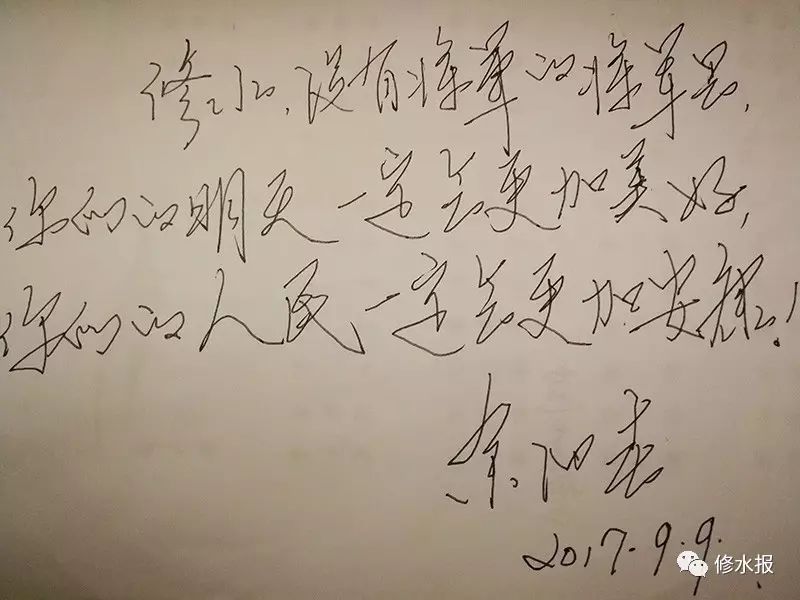 修水,没有将军的将军县,
你们的明天一定会更加美好,
你们的人民一定会更加安康!
余阳春
2017.9.9.
修水报